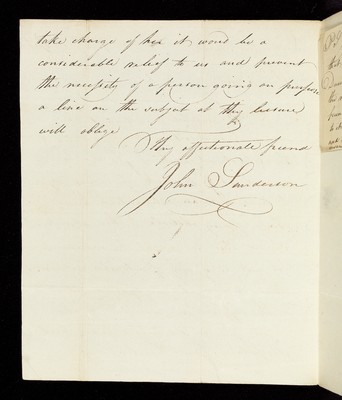 take charge of her it would be a
considerable relief to us and prevent
the necessity of a person going on purpose
a line on the subject at thy leisure
will oblige
Thy affectionate friend
John Sanderson